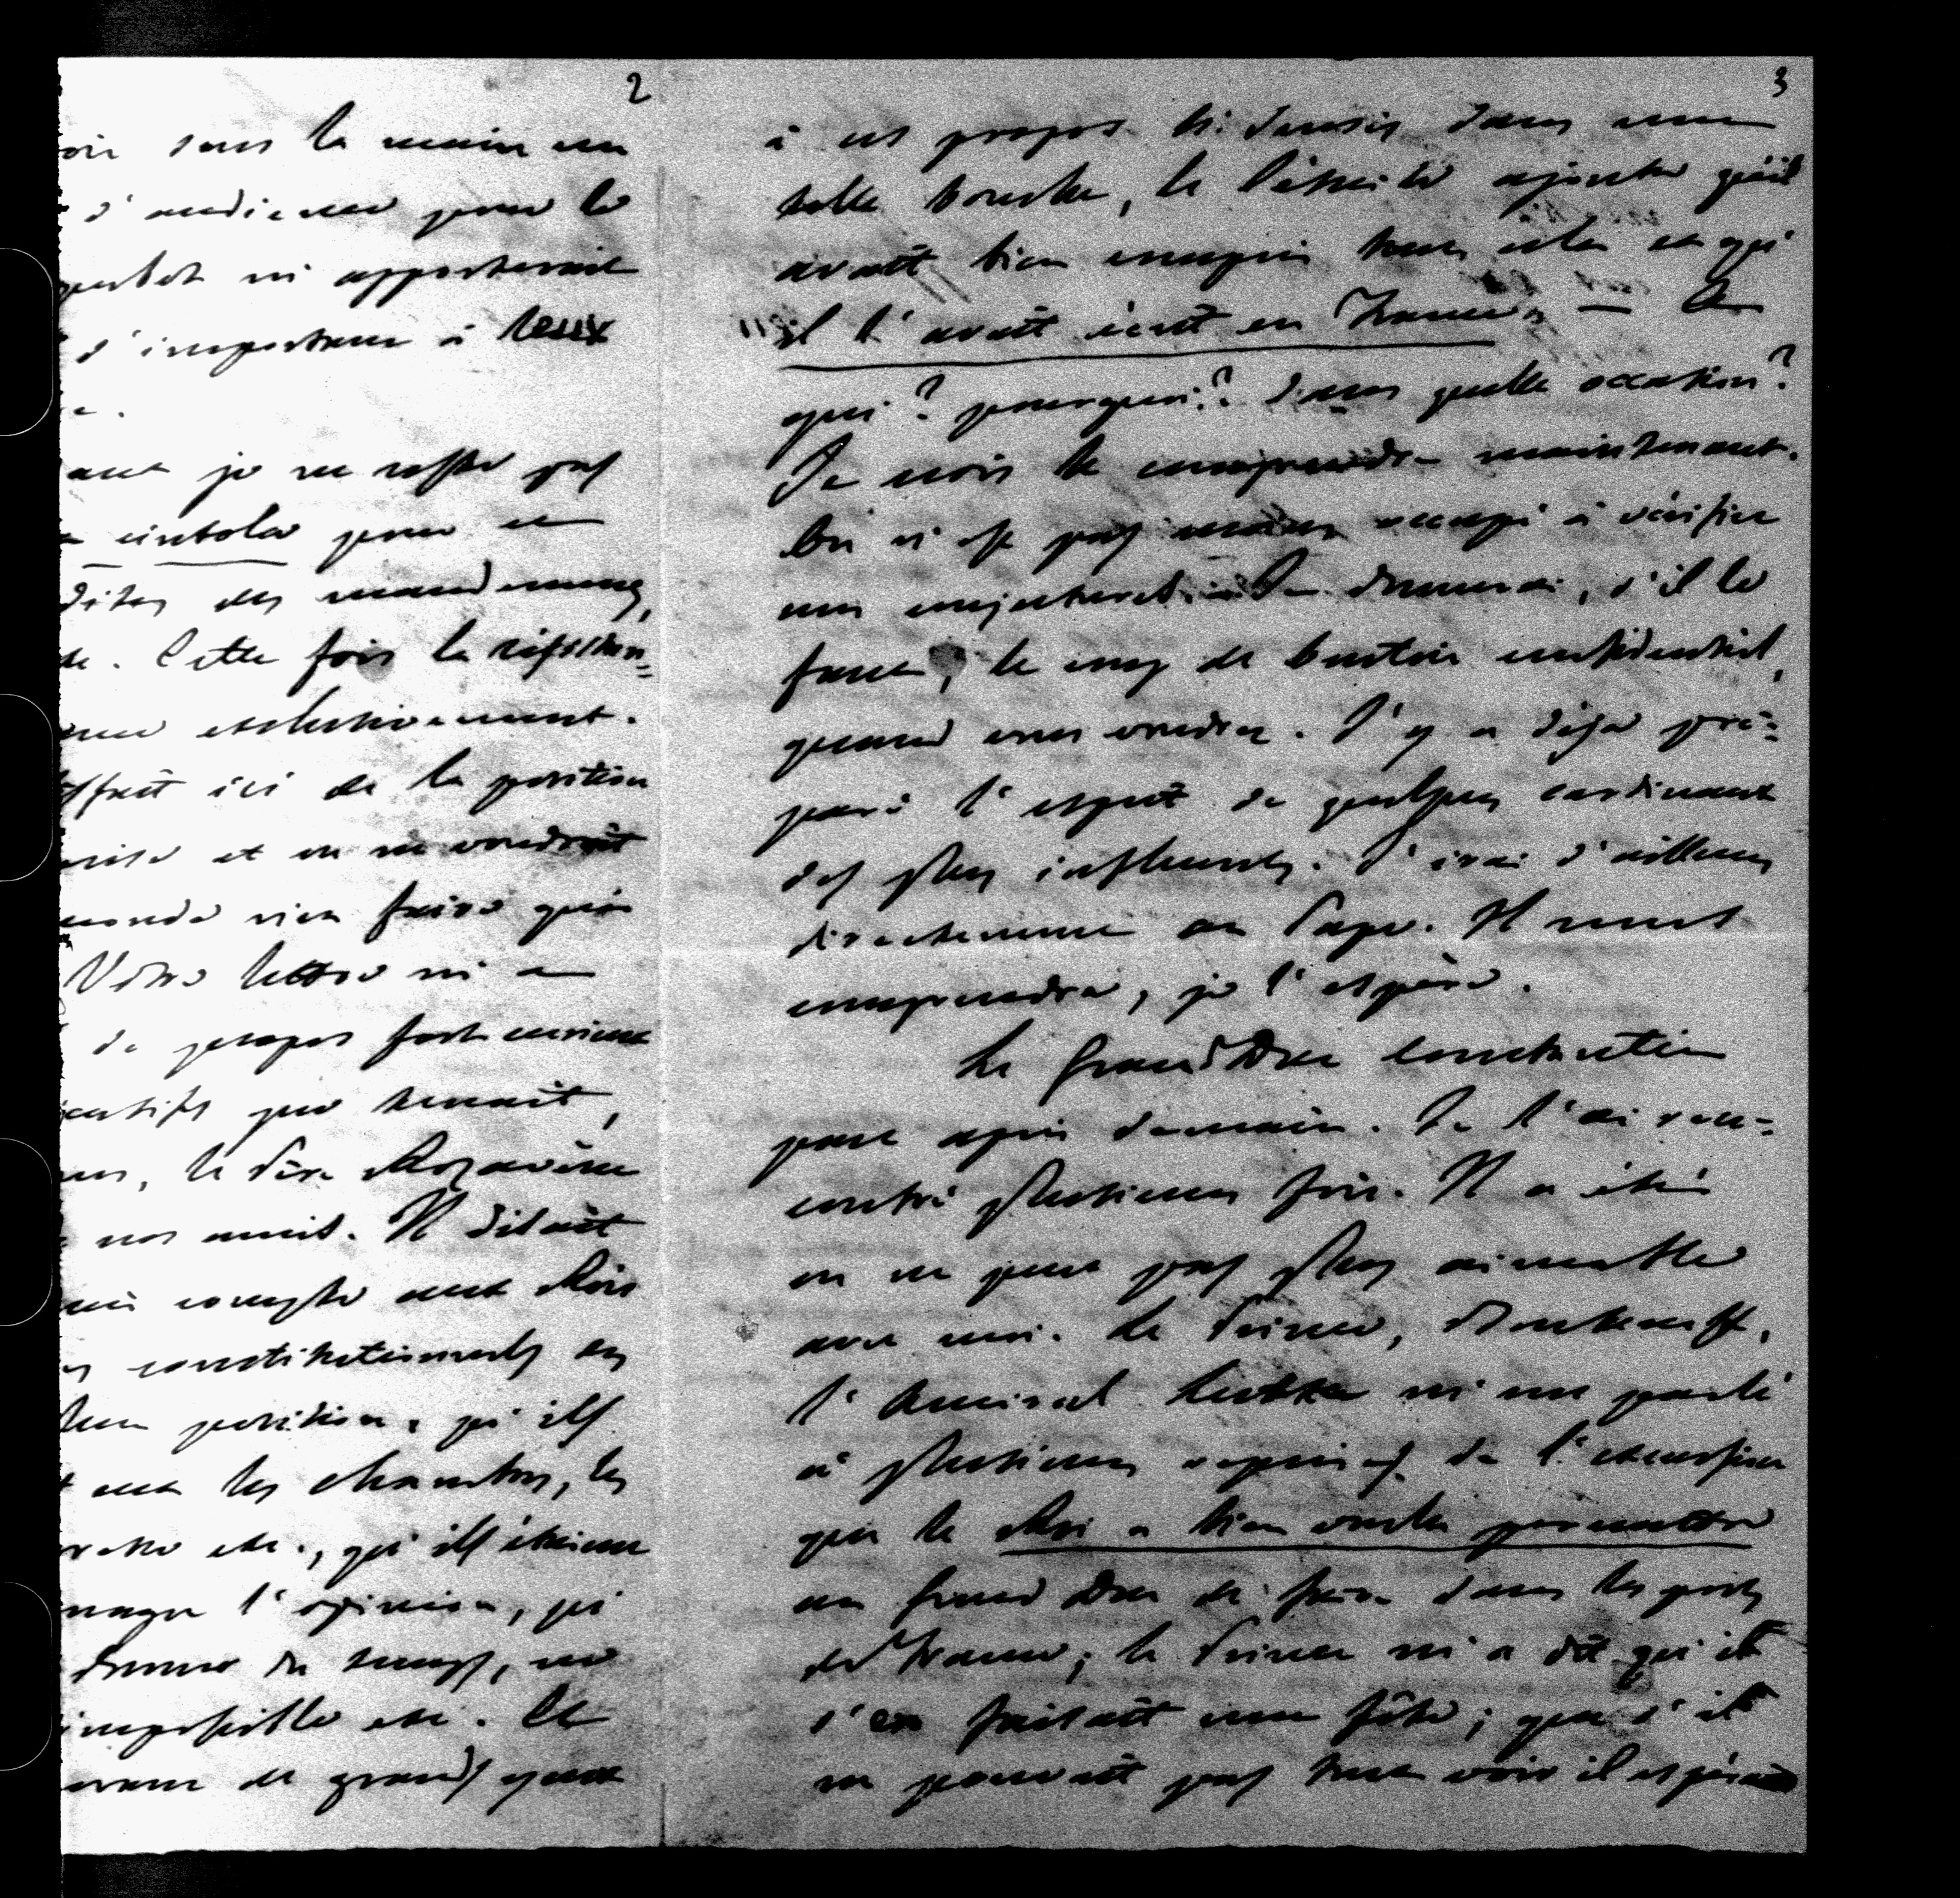 2
oir sous la main un
d'audience pour le
quelet m'apporterait
d'importance à ceux
je ne reste pas
cintola pour
dites des mandemens,
de. Cette fois la rispon=
exclusivement.
ici de la position
et on ne voudroit
monde rien faire qui
Votre lettre m'a
de propos fort curieux
que tenait,
le Père Rozavène
nos amis. Il disait
compte aux Rois
constitutionnels de
leur position, qu'ils
aux les chambres, les
etc., qu'ils étaient
l'opinion, qui
donner du temps, ne
impossible etc. Et
ouvrant de grands yeux
3
à ces propos si sensés dans une
telle bouche, le Jésuite ajouta qu'il
avait bien compris tout cela et qu'
il l'avait écrit en France. — A
qui? pourquoi? dans quelle occasion?
Je crois le comprendre maintenant.
On n'est pas moins occupé à vérifier
mes conjectures. Je donnerai, s'il le
faut, le coup de boutoir confidentiel,
quand vous voudrez. J'y ai déjà pré=
paré l'esprit de quelques cardinaux
des plus influents. J'irai d'ailleurs
directement au Pape. Il nous
comprendra, je l'espère.
Le Grand Duc Constantin
part après demain. Je l'ai ren=
contré plusieurs fois. Il a été
on ne peut pas plus aimable
avec moi. Le Prince,
l'Amiral Lutke m'ont parlé
à plusieurs reprises de l'excursion
que le Roi a bien voulu permettre
au Grand Duc de faire dans les ports
de France; le Prince m'a dit qu'il
s'en faisait une fête; que s'il
ne pouvait pas tout voir il espérait